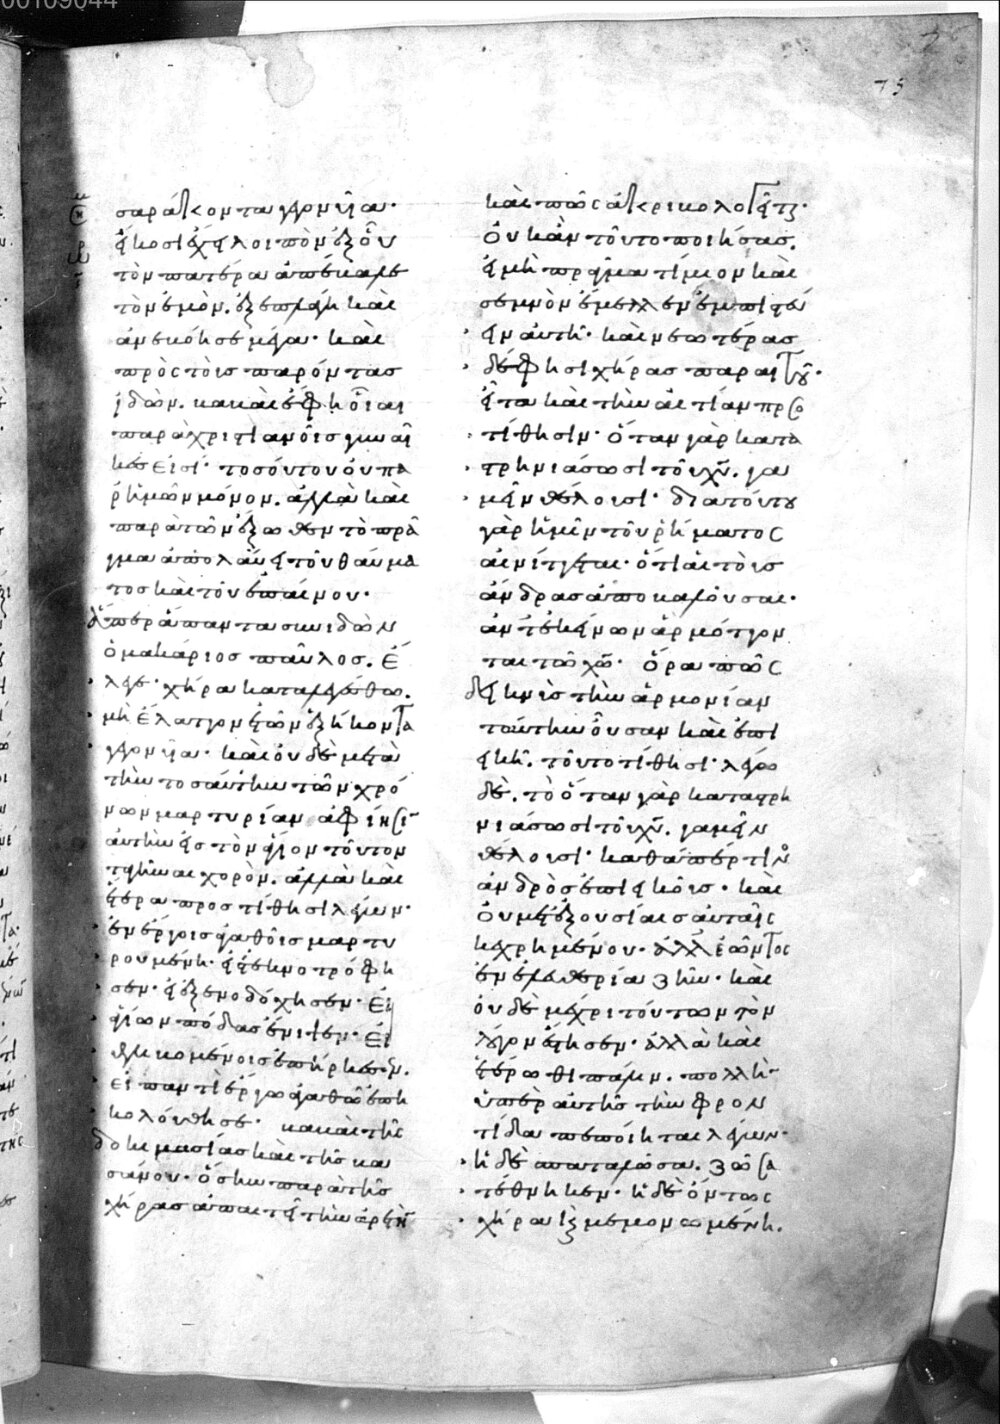 75
σαράκοντα γεγονυῖα·
εἴκοσι ἔχει λοιπὸν ἐξ οὗ
τὸν πατέρα ἀπέβαλε
τὸν ἐμὸν. ἐξεπλάγη καὶ
ἀνεβόησε μέγα· καὶ
πρὸς τοὺς παρόντας
ἰδὼν. βαβαὶ ἔφη οἷαι
παρὰ χριστιανοῖς γυναῖ
κες εἰσί· τοσοῦτον οὐ πα
ρ' ἡμῶν μόνον. ἀλλὰ καὶ
παρὰ τῶν ἔξωθεν τὸ πρᾶ
γμα ἀπολαύει τοῦ θαύμα
τος καὶ τοῦ ἐπαίνου·
ἅπερ ἅπαντα συνιδὼν
ὁ μακάριος παῦλος. ἔ
λεγε· χήρα καταλεγέσθω.
μὴ ἔλαττον ἐτῶν ἑξήκοντα
γεγονυῖα· καὶ οὐδὲ μετὰ
τὴν τοσαύτην τῶν χρό
νων μαρτυρίαν ἀφίησιν
αὐτὴν εἰς τὸν ἅγιον τοῦτον
τελεῖν χορὸν. ἀλλὰ καὶ
ἕτερα προστίθησι λέγων·
ἐν ἔργοις ἀγαθοῖς μαρτυ
ρουμένη· εἰ ἐτεκνοτρόφη
σεν· εἰ ἐξενοδόχησεν· εἰ
ἁγίων πόδας ἔνιψεν· εἰ
θλιβομένοις ἐπήρκεσεν.
εἰ παντὶ ἔργῳ ἀγαθῷ ἐπη
κολούθησε· βαβαὶ τῆς
δοκιμασίας καὶ τῆς βα
σάνου· ὅσην παρὰ τῆς
χήρας ἀπαιτεῖ τὴν ἀρετὴν
καὶ πῶς ἀκριβολογεῖται·
οὐκ ἂν τοῦτο ποιήσας.
εἰ μὴ πρᾶγμα τίμιον καὶ
σεμνὸν ἔμελλεν ἐμπιστεύ
ειν αὐτῇ· καὶ νεωτέρας
δέ φησι χήρας παραιτοῦ·
εἶτα καὶ τὴν αἰτίαν προσ
τίθησιν· ὅταν γὰρ κατα
στρηνιάσωσι τοῦ χῦ. γα
μεῖν θέλουσι· διὰ τούτου
γὰρ ἡμῖν τοῦ ῥήματος
αἰνίττεται· ὅτι αἱ τοὺς
ἄνδρας ἀποβαλοῦσαι·
ἀντ' ἐκείνων ἁρμόττον
ται τῷ χῶ· ὅρα πῶς
δεικνὺς τὴν ἁρμονίαν
ταύτην οὖσαν καὶ ἐπι
εικῆ. τοῦτο τίθησι· λέγω
δὲ. τὸ ὅταν γὰρ καταστρη
νιάσωσι τοῦ χῦ. γαμεῖν
θέλουσι· καθάπερ τινὸς
ἀνδρὸς ἐπιεικοῦς· καὶ
οὐ μετ' ἐξουσίας αὐταῖς
κεχρημένου· ἀλλ' ἐῶντος
ἐν ἐλευθερίᾳ ζῆν· καὶ
οὐδὲ μέχρι τούτων τὸν
λόγον ἔστησεν· ἀλλὰ καὶ
ἑτέρωθι πάλιν. πολλὴν
ὑπὲρ αὐτῆς τὴν φρον
τίδα πεποίηται λέγων·
ἡ δὲ σπαταλῶσα. ζῶσα
τέθνηκεν· ἡ δὲ ὄντως
χήρα καὶ μεμονωμένη.